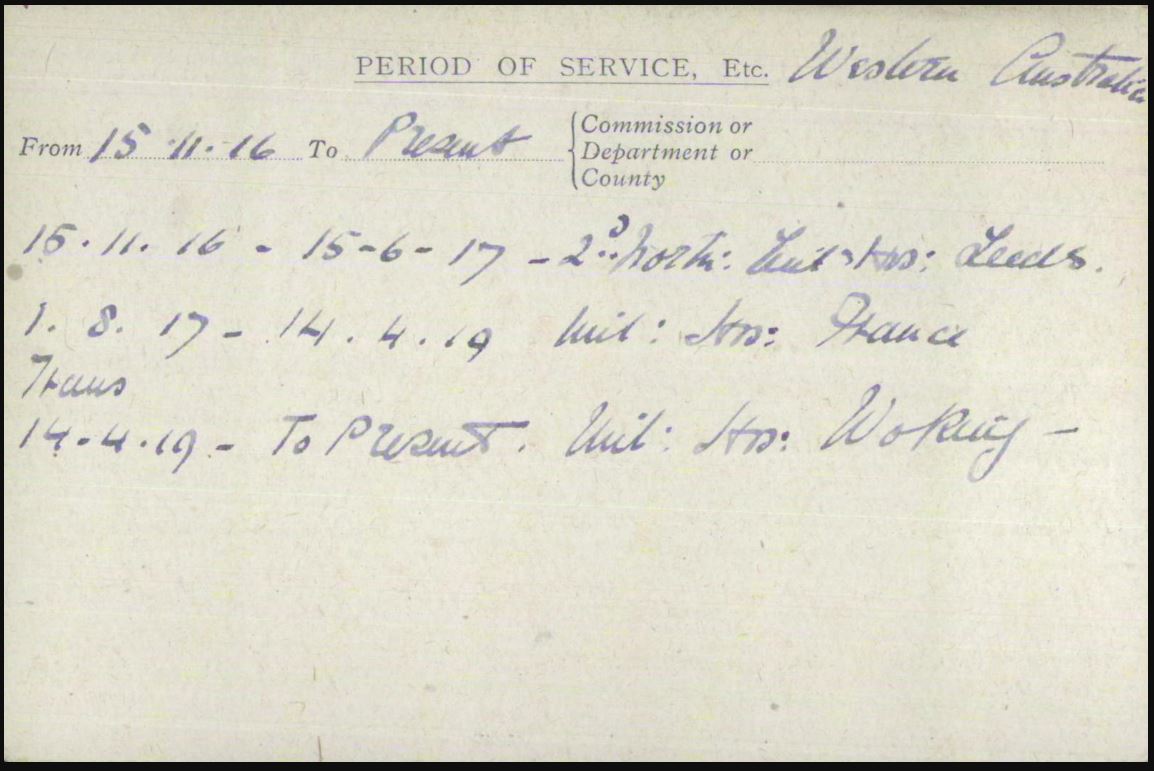 PERIOD OF SERVICE, Etc. Western Australia
From 15.11.16 To Present {Commission or Department or County
15.11.16 - 15-6-17 - 2nd North: Hos: Leeds.
1.8.17 - 14.4.19 Mil: Hos: France
Trans
14.4.19 - To Present. Mil: Hos: Woking -